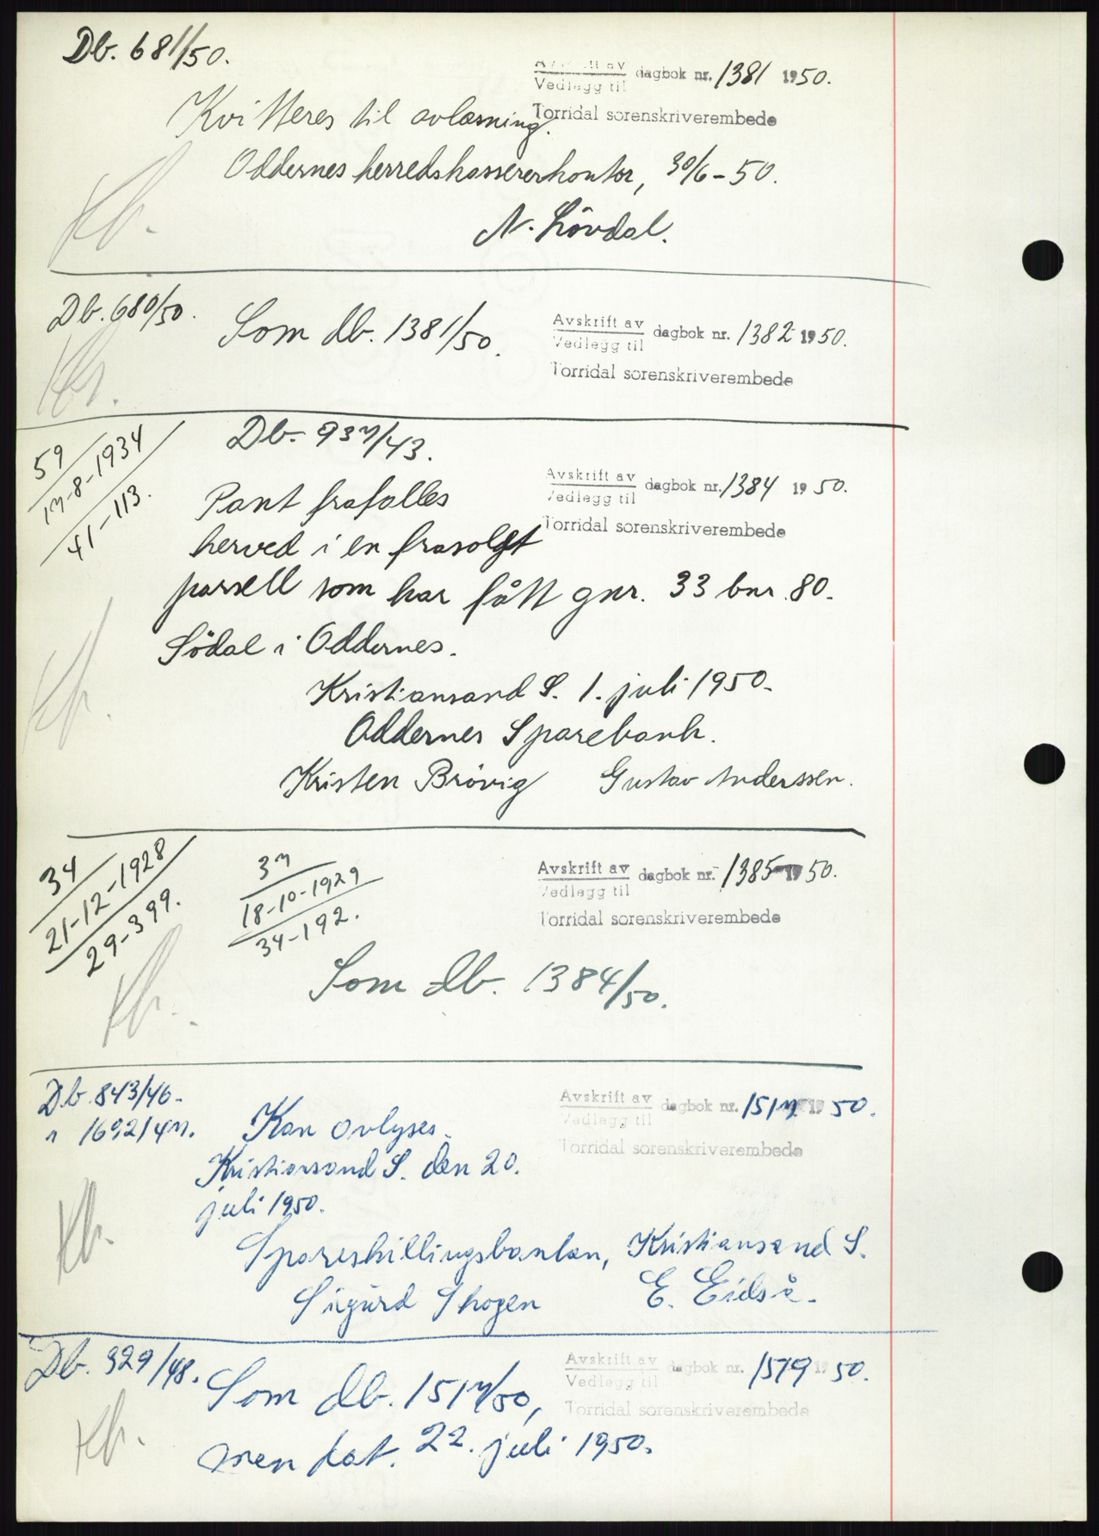 Db. 681/50.
Avskrift av
Vedlegg til
dagbok nr. 1381 1950.
Torridal sorenskriverembede
Kvitteres til avlæsning.
Oddernes herredskassererkontor, 30/6-50.
N. Lövdal.
Kr.
Db. 680/50.
Som db. 1381/50.
Avskrift av
Vedlegg til
dagbok nr. 1382 1950.
Torridal sorenskriverembede
Kr.
59
17-8-1934
41-113.
Db. 937/43.
Avskrift av
Vedlegg til
dagbok nr. 1384 1950.
Torridal sorenskriverembede
Pant frafalles
herved i en frasolgt
parsell som har fått gnr. 33 bnr. 80.
Södal i Oddernes.
Kristiansand S. 1. juli 1950.
Oddernes Sparebank.
Kristen Brövig Gustav Anderssen.
Kr.
34
21-12-1928
29-399.
37
18-10-1929
34-192.
Avskrift av
Vedlegg til
dagbok nr. 1385 1950.
Torridal sorenskriverembede
Som db. 1384/50.
Kr.
Db. 843/46.
i 1692/47.
Avskrift av
Vedlegg til
dagbok nr. 1517 1950.
Torridal sorenskriverembede
Kan avlyses.
Kristiansand S. den 20.
juli 1950.
Spareskillingsbanken, Kristiansand S.
Sigurd Skogen E. Eidså.
Kr.
Db. 329/48.
Avskrift av
Vedlegg til
dagbok nr. 1519 1950.
Torridal sorenskriverembede
Som db. 1517/50,
men dat. 22. juli 1950.
Kr.